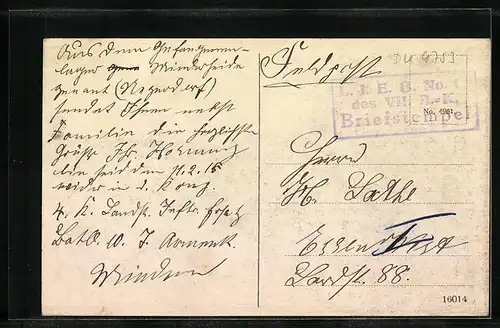 Aus dem Gefangenen-
lager Minderheide
genant (Negerdorf)
sendet Ihnen nebst
Familie die herzlichsten
Grüsse Ihr Hornung
bin seid dem 11.2.15
wieder in 2. Komp.
4. K. Landst. Inftr. Ersatz
Batl. 10. 7. Armeek.
Minden
Feldpost
DU 4753
L. I. E. B. No.
des VII. A.-K.
Briefstempel
No. 4961
Herrn
H. Lathe
Essen
Lardst. 88.
16014